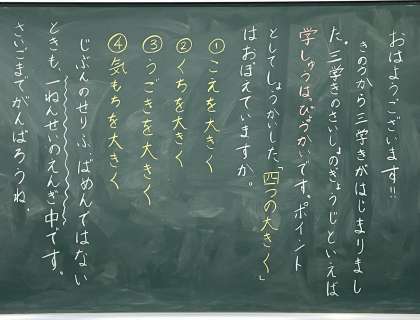 おはようございます!!
きのうから三学きがはじまりまし
た。三学きのさいしょのぎょうじといえば
学しゅうはっぴょうかいです。ポイント
としてしょうかいした「四つの大きく」
はおぼえていますか。
①こえを大きく
②くちを大きく
③うごきを大きく
④気もちを大きく
じぶんのせりふ、ばめんではない
ときも、一ねんせいのえんぎ中です。
さいごまでがんばろうね。